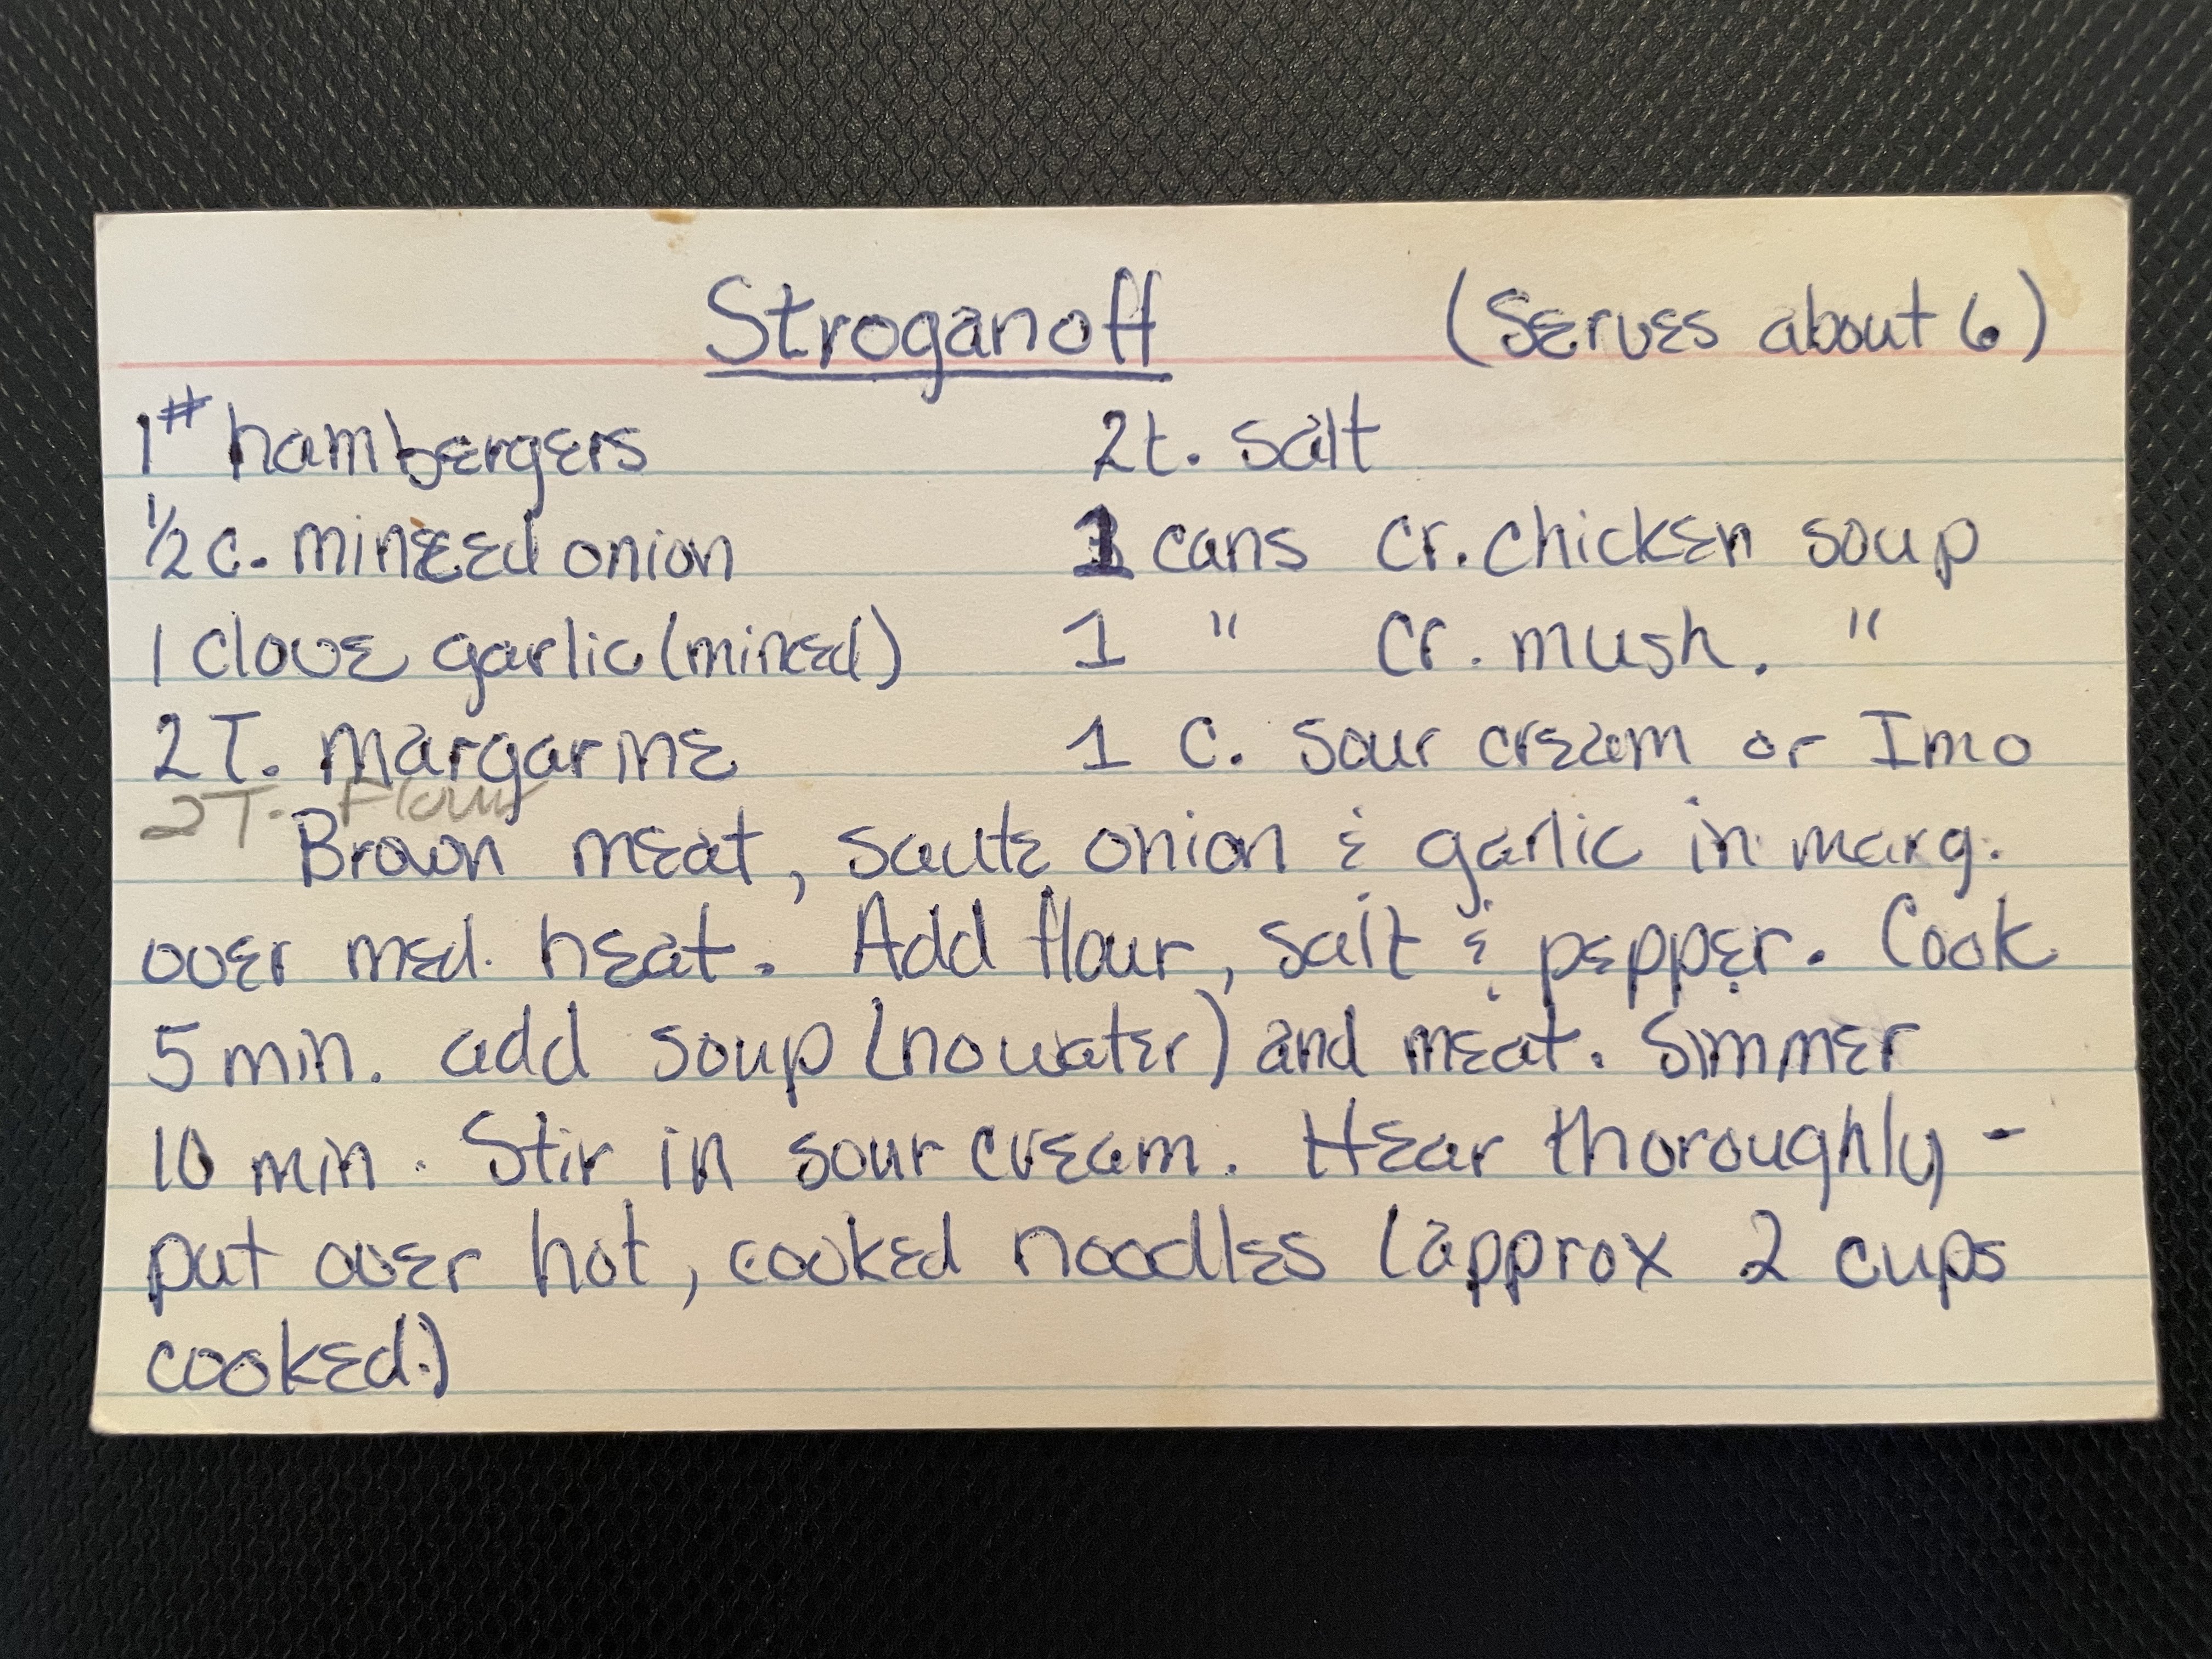 Stroganoff (Serves about 6)
1# hambergers 2t. salt
1/2 c. minced onion 1 cans cr. chicken soup
1 clove garlic (minced) 1 " cr. mush. "
2 T. margarine 1 C. sour cream or Imo
2 T. Flour
Brown meat, saute onion & garlic in marg.
over med. heat. Add flour, salt & pepper. Cook
5 min. add soup (no water) and meat. Simmer
10 min. Stir in sour cream. Hear thoroughly -
put over hot, cooked noodles (approx 2 cups
cooked.)